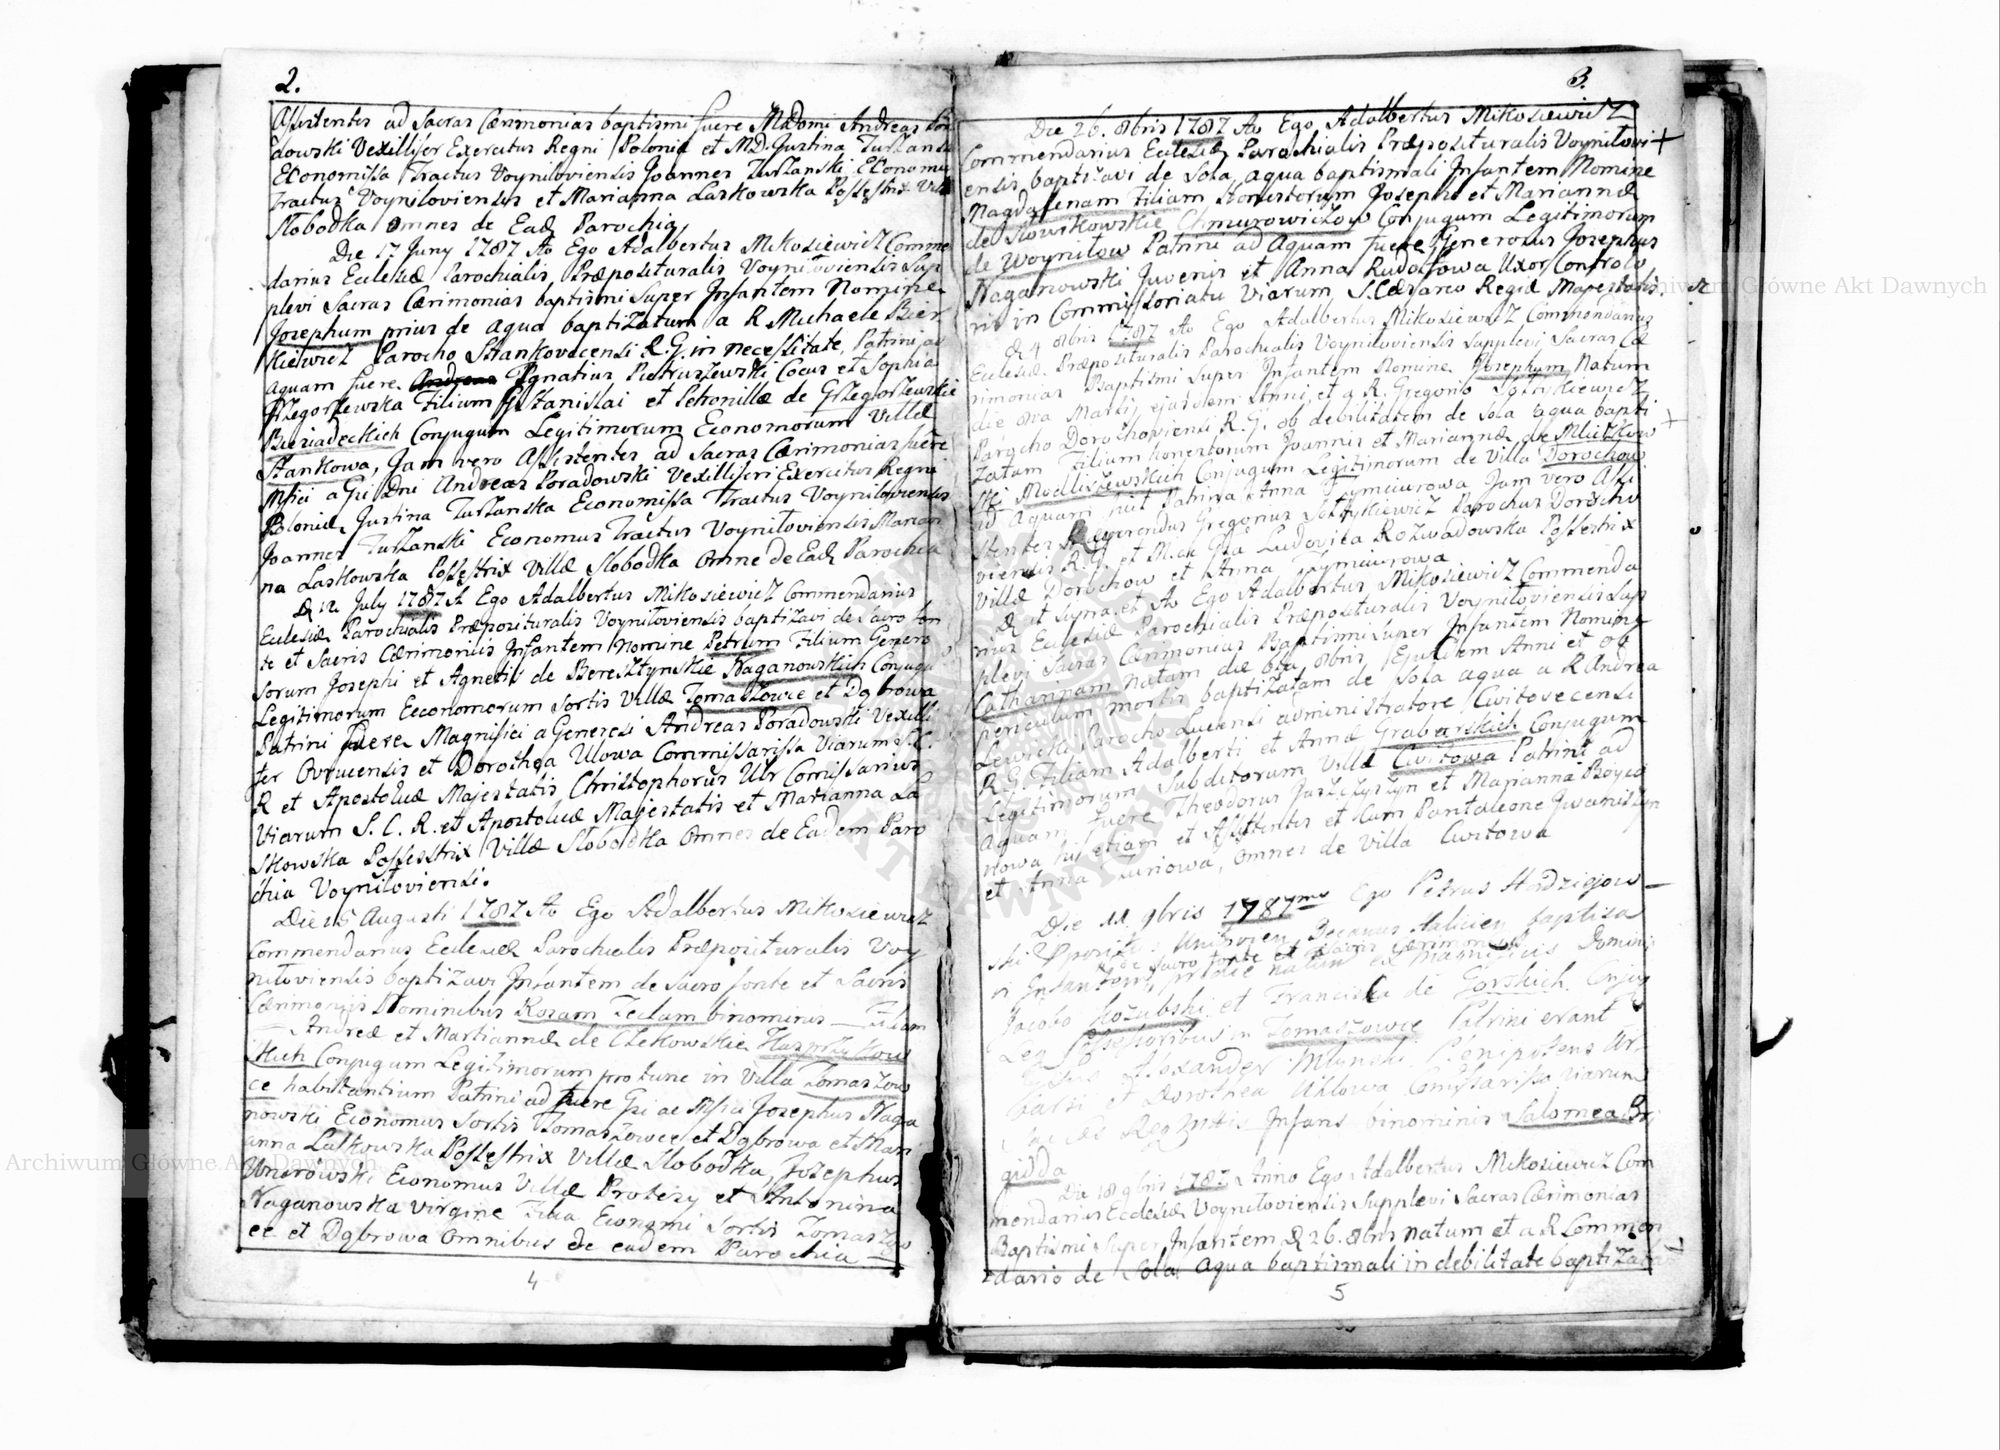 2.
Assistentes ad Sacras Cærimonias baptismi fuere M.D.omi Andreas Po
dowski Vexillifer Exercitus Regni Poloniæ et M.D. Justina Turzansk
Economissa Tractus Voyniloviensis Joannes Turzanski Economu
Tractus Voyniloviensis et Marianna Laskowska Possestrix Villæ
Slobodka Omnes de Ead. Parochia
Die 17 Juny 1787 Ao Ego Adalbertus Mikosiewicz Comme
darius Ecclesiæ Parochialis Præposituralis Voyniloviensis Sup
plevi Sacras Cærimonias baptismi Super Infantem Nomine
Josephum prius de aqua baptizatum a R. Michaele Bier
kiewicz Parocho Stankovecensi R.G. in necessitate, Patrini ad
aquam fuere Ignatius Pietruszewski Cocus et Sophia
Grzegorzewska Filium G. Stanislai et Petronillæ de Grzegorzewskie
Bieriadeckich Conjugum Legitimorum Economorum Villæ
Stankowa, Jam vero Assistentes ad Sacras Cærimonias fuere
Msfici a Gsi Dni Andreas Poradowski Vexilliferi Exercitus Regni
Poloniæ, Justina Turzanska Economissa Tractus Voyniloviensis
Joannes Turzanski Economus Tractus Voyniloviensis Marian
na Laskowska Possestrix Villæ Slobodka Omne de Ead. Parochia
D. 12 July 1787 A Ego Adalbertus Mikosiewicz Commendarius
Ecclesiæ Parochialis Præposituralis Voyniloviensis baptizavi de Sacro fon
te et Sacris Cærimoniis Infantem Nomine Petrum Filium Genero
sorum Josephi et Agnetis de Beresztynskie Naganowskich Conjugu
Legitimorum Eeconomorum Sortis Villæ Tomaszowce et Dąbrowa
Patrini fuere Magnifici a Generosi Andreas Poradowski Vexilli
fer Ovrucensis et Dorothea Ulowa Commissarissa Viarum S.C.
R et Apostolicæ Majestatis Christophorus Uhr Comissarius
Viarum S. C. R. et Apostolicæ Majestatis et Marianna La
skowska Possestrix Villæ Slobodka Omnes de Eadem Paro
chia Voyniloviensi.
Die 15 Augusti 1787 Ao Ego Adalbertus Mikosiewicz
Commendarius Ecclesiæ Parochialis Præposituralis Voy
niloviensis baptizavi Infantem de Sacro fonte et Sacris
Cærimoniis Nominibus Rosam Teclam binominis — Filiam
Andreæ et Mariannæ de Czekowskie Kasprzykow
skich Conjugum Legitimorum pro tunc in Villa Tomaszow
ce habitantium Patrini ad fuere Gsi ac Msfici Josephus Naga
nowski Economus Sortis Tomaszowce et Dąbrowa et Mari
anna Laskowska Possestrix Villæ Slobodka, Josephus
Unurowski Economus Villæ Protesy et Antonina
Naganowska virgine Filia Economi Sortis Tomaszow
ce et Dąbrowa Omnibus de eadem Parochia
4
3.
Die 26. 8bris 1787 Ao Ego Adalbertus Mikosiewicz
Commendarius Ecclesiæ Parochialis Præposituralis Voynilovi
ensis baptizavi de Sola aqua baptismali Infantem Nomine
Magdalenam Filiam Honestorum Josephi et Mariannæ
de Slowikowskie Chmurowiczow Conjugum Legitimorum
de Woynilow Patrini ad Aquam fuere Generosus Josephus
Naganowski Juvenis et Anna Rudolfowa Uxor Controlo
ris in Commissoriatu Viarum S. Cæsareo Regiæ Majestatis
D. 4 8bris 1787 Ao Ego Adalbertus Mikosiewicz Commendarius
Ecclesiæ Præposituralis Parochialis Voyniloviensis Supplevi Sacras Cæ
rimonias Baptismi Super Infantem Nomine Josephum Natum
die 8va Martij ejusdem Anni, et a R. Gregorio Soltykiewicz
Parocho Dorochoviensi R.G. ob debilitatem de Sola aqua bapti
zatum Filium Honestorum Joannis et Mariannæ de Mliczkow
ski Modliszewskich Conjugum Legitimorum de Villa Dorochow
ad Aquam fuit Patrina Anna Tymciurowa Jam vero Assi
stentes Reverendus Gregorius Soltykiewicz Parochus Dorocho
viensis R.G. et M.ca Gsa Ludovica Rozwadowska Possestrix
Villæ Dorochow et Anna Tymciurowa
D. ut Supra et Ao Ego Adalbertus Mikosiewicz Commenda
rius Ecclesiæ Parochialis Præposituralis Voyniloviensis Sup
plevi Sacras Cærimonias Baptismi Super Infantem Nomine
Catharinam natam die 6ta 8bris Ejusdem Anni et ob
periculum mortis baptizatam de Sola aqua a R Andrea
Lewicki Parocho Lucensi administratore Cwitovecensi
R.G. Filiam Adalberti et Annæ Grabarskich Conjugum
Legitimorum Subditorum Villæ Cwitowa Patrini ad
Aquam fuere Theodorus Jaszczyszyn et Marianna Boyce
nowa hi etiam et Assistentes et cum Pantaleone Iwaniszyn
et Anna Luniowa, Omnes de Villa Cwitowa
Die 11 9bris 1787mo Ego Petrus Hadziejow—
ski Præposit. Uniovien Decanus Halicien baptisa
de Sacro fonte et Sacris Cærimoniis
vi Infantem, pridie natum ex Magnificis Dominis
Jacobo Kozubski et Francisca de Gorskich Conjug
Leg Possessoribus in Tomaszowce Patrini erant
Alexander Mlynski Plenipotens Ur-
barsi et Dorothea Uhlowa Comissarissa viarum
Infans binominis Salomea Bri
gidda
Die 18 9bris 1787 Anno Ego Adalbertus Mikosiewicz Com
mendarius Ecclesiæ Voyniloviensis Supplevi Sacras Cærimonias
Baptismi Super Infantem D. 26. 8bris natum et a R Commen
dario de Sola Aqua baptismali in debilitate baptizatu
5
Archiwum Główne Akt Dawnych
Archiwum Główne Akt Dawnych